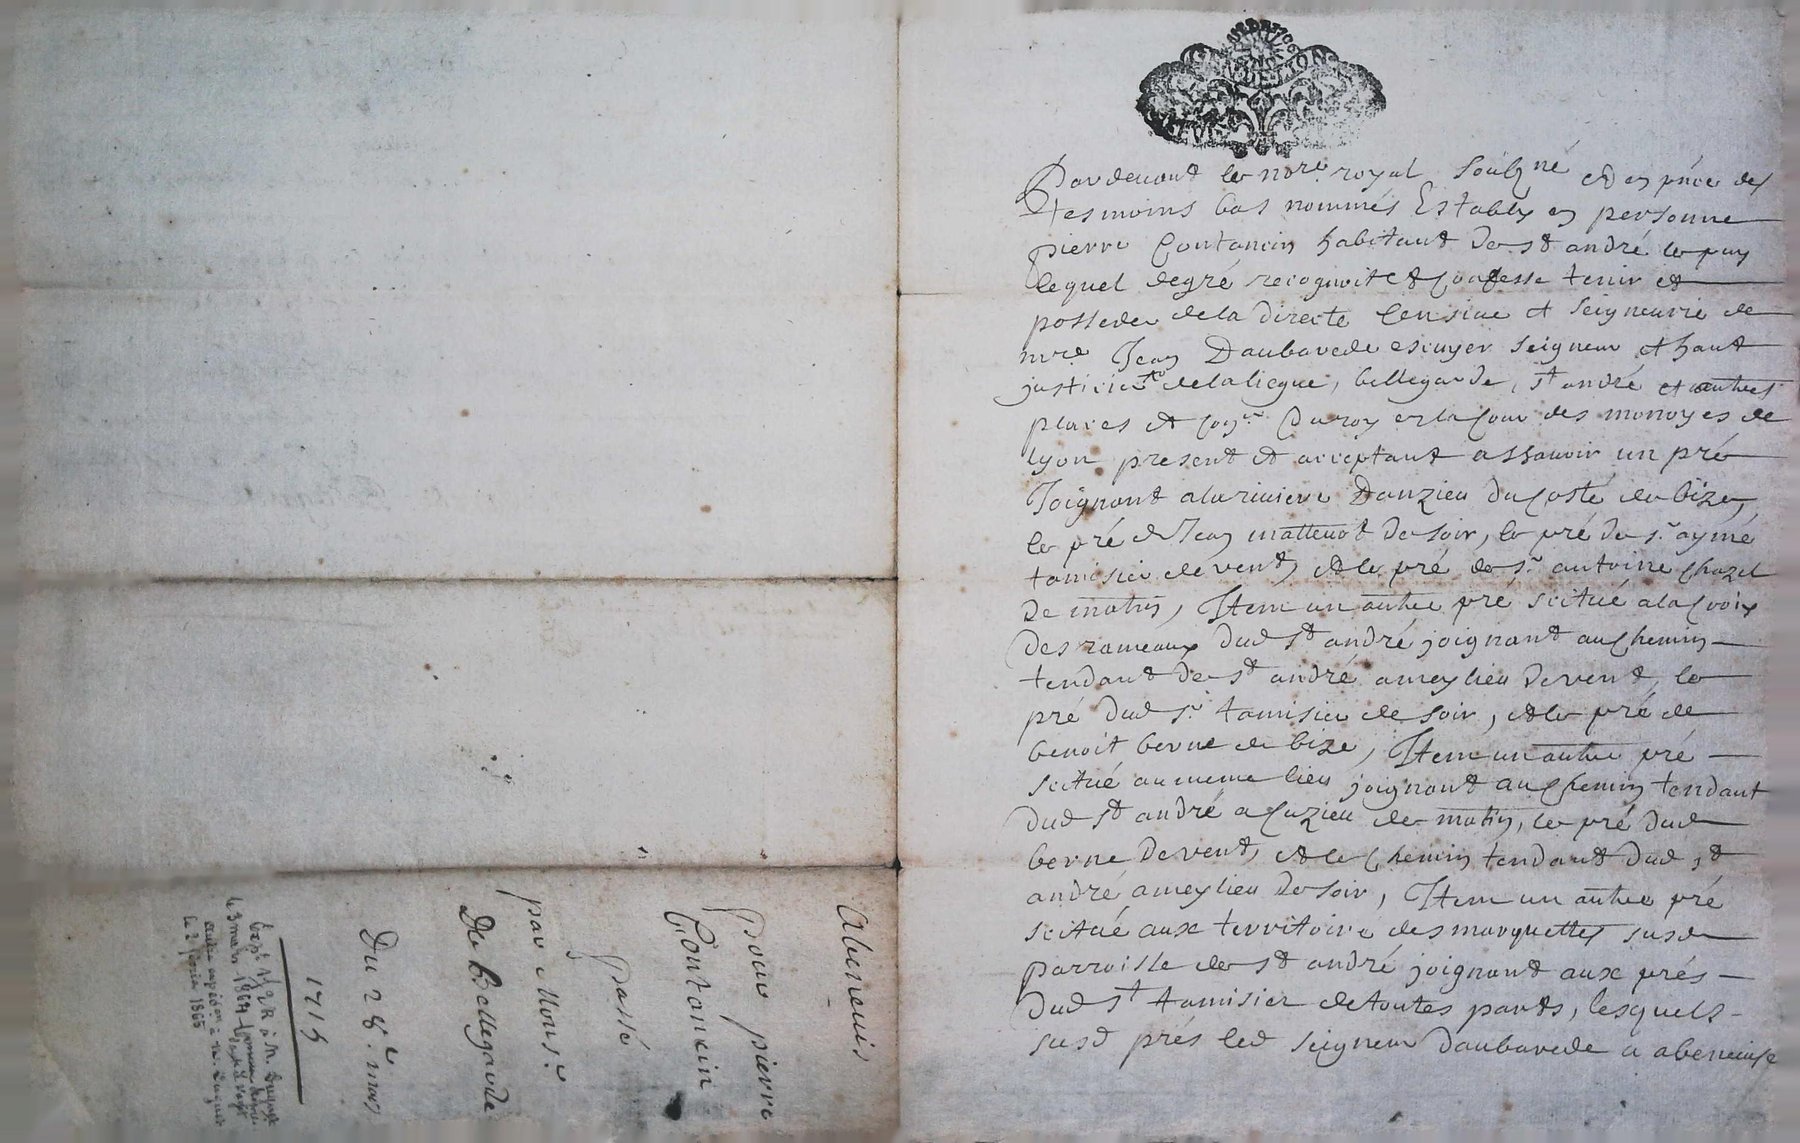 Abeneuis
pour pierre
Contancin
passé
par Mons.r
De Bellegarde
Du 28.e mars
1715
Par devant le no.re royal soubz.né et en pnce des
tesmoins bas nommés Estably en personne
pierre Contancin habitant de st andré le puy
lequel de gré recognoit et confesse tenir et
posseder de la directe censiue et seigneurie de
mre Jean Daubarede escuyer seigneur et haut
justicier de la liegue, bellegarde, st andré et autres
places et con.er du roy en la cour des monoyes de
lyon present et acceptant assauoir un pré
Joignant a la riuiere Danzieu du costé de bize,
le pré de Jean mattenot de soir, le pré de sr aymé
tamisier de vent, et le pré de sr antoine Chazel
De matin, Item un autre pré scitué a la Croix
des rameaux dud st andré joignant au chemin
tendant de st andré a meylieu de vent, le
pré dud sr tamisier de soir, et le pré de
benoit berne de bize, Item un autre pré
scitué au meme lieu joignant au chemin tendant
dud st andré a Cuzieu de matin, le pré dud
berne de vent, et le chemin tendant dud st
andré a meylieu de soir, Item un autre pré
scitué aux territoire des marquettes susd
parroisse de st andré joignant aux prés
dud sr tamisier de toutes parts, lesquels
susd prés led seigneur Daubarede a abeneuisé